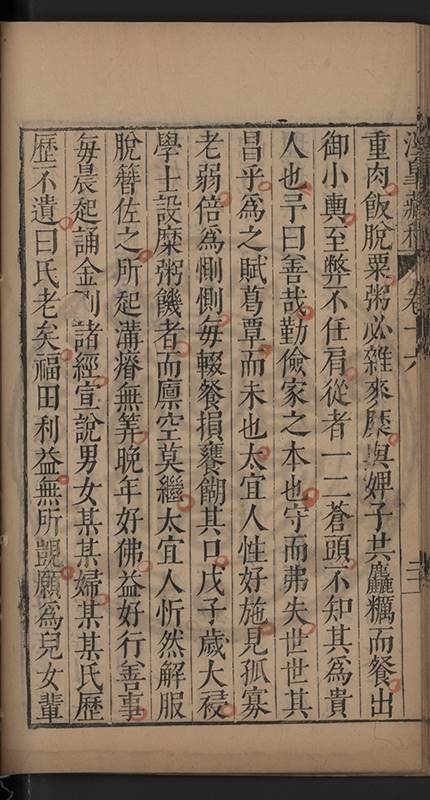 卷十六
重肉飯脫粟粥必雜來糜與婢子共麤糲而餐出
御小輿至弊不任肩從者一二蒼頭不知其為貴
人也予曰善哉勤儉家之本也守而弗失世世其
昌乎為之賦葛覃而未也太宜人性好施見孤寡
老弱倍為惻惻每輟餐損饔餬其口戊子歲大祲
學士設糜粥饑者而廩空莫繼太宜人忻然解服
脫簪佐之所起溝瘠無筭晚年好佛益好行善事
每晨起誦金剛諸經宣說男女某某婦某某氏歷
歷不遺曰氏老矣福田利益無所覬願為兒女輩